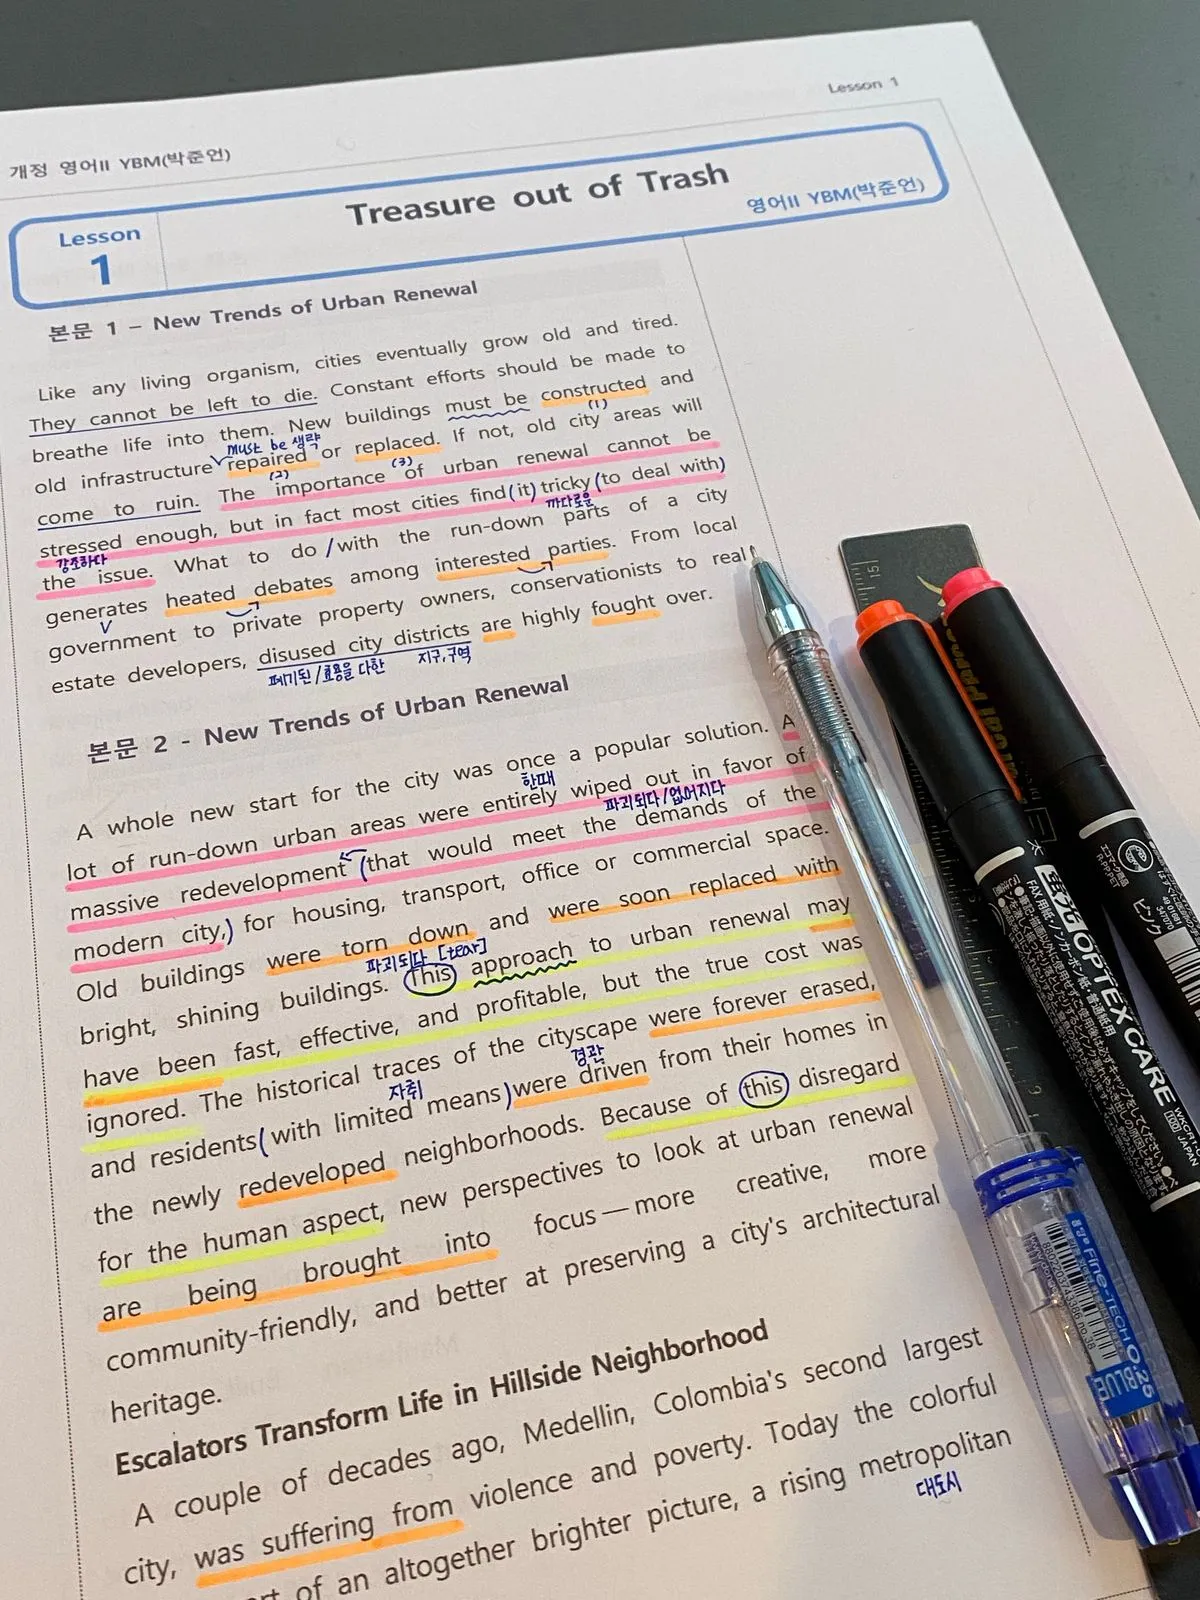 Lesson 1
개정 영어II YBM(박준언)
Lesson
1
Treasure out of Trash
영어II YBM(박준언)
본문 1 – New Trends of Urban Renewal
Like any living organism, cities eventually grow old and tired.
They cannot be left to die. Constant efforts should be made to
breathe life into them. New buildings must be constructed and
must be 생략
(1)
old infrastructure repaired or replaced. If not, old city areas will
(2)
(3)
come to ruin. The importance of urban renewal cannot be
stressed enough, but in fact most cities find (it) tricky (to deal with)
강조하다
까다로운
the issue. What to do / with the run-down parts of a city
generates heated debates among interested parties. From local
government to private property owners, conservationists to real
estate developers, disused city districts are highly fought over.
폐기된/효용을 다한
지구, 구역
본문 2 - New Trends of Urban Renewal
A whole new start for the city was once a popular solution. A
한때
lot of run-down urban areas were entirely wiped out in favor of
파괴되다/없어지다
massive redevelopment (that would meet the demands of the
modern city,) for housing, transport, office or commercial space.
Old buildings were torn down and were soon replaced with
파괴되다 [tear]
bright, shining buildings. This approach to urban renewal may
have been fast, effective, and profitable, but the true cost was
ignored. The historical traces of the cityscape were forever erased,
자취
경관
and residents (with limited means) were driven from their homes in
the newly redeveloped neighborhoods. Because of this disregard
for the human aspect, new perspectives to look at urban renewal
are being brought into focus — more creative, more
community-friendly, and better at preserving a city's architectural
heritage.
Escalators Transform Life in Hillside Neighborhood
A couple of decades ago, Medellin, Colombia's second largest
city, was suffering from violence and poverty. Today the colorful
of an altogether brighter picture, a rising metropolitan
대도시
15
蛍光OPTEX CARE
FAX用紙・ノーカーボン紙・普通紙用
ピンク
エコマーク商品
JAPAN
Fine-TECH 0.25
BLUE